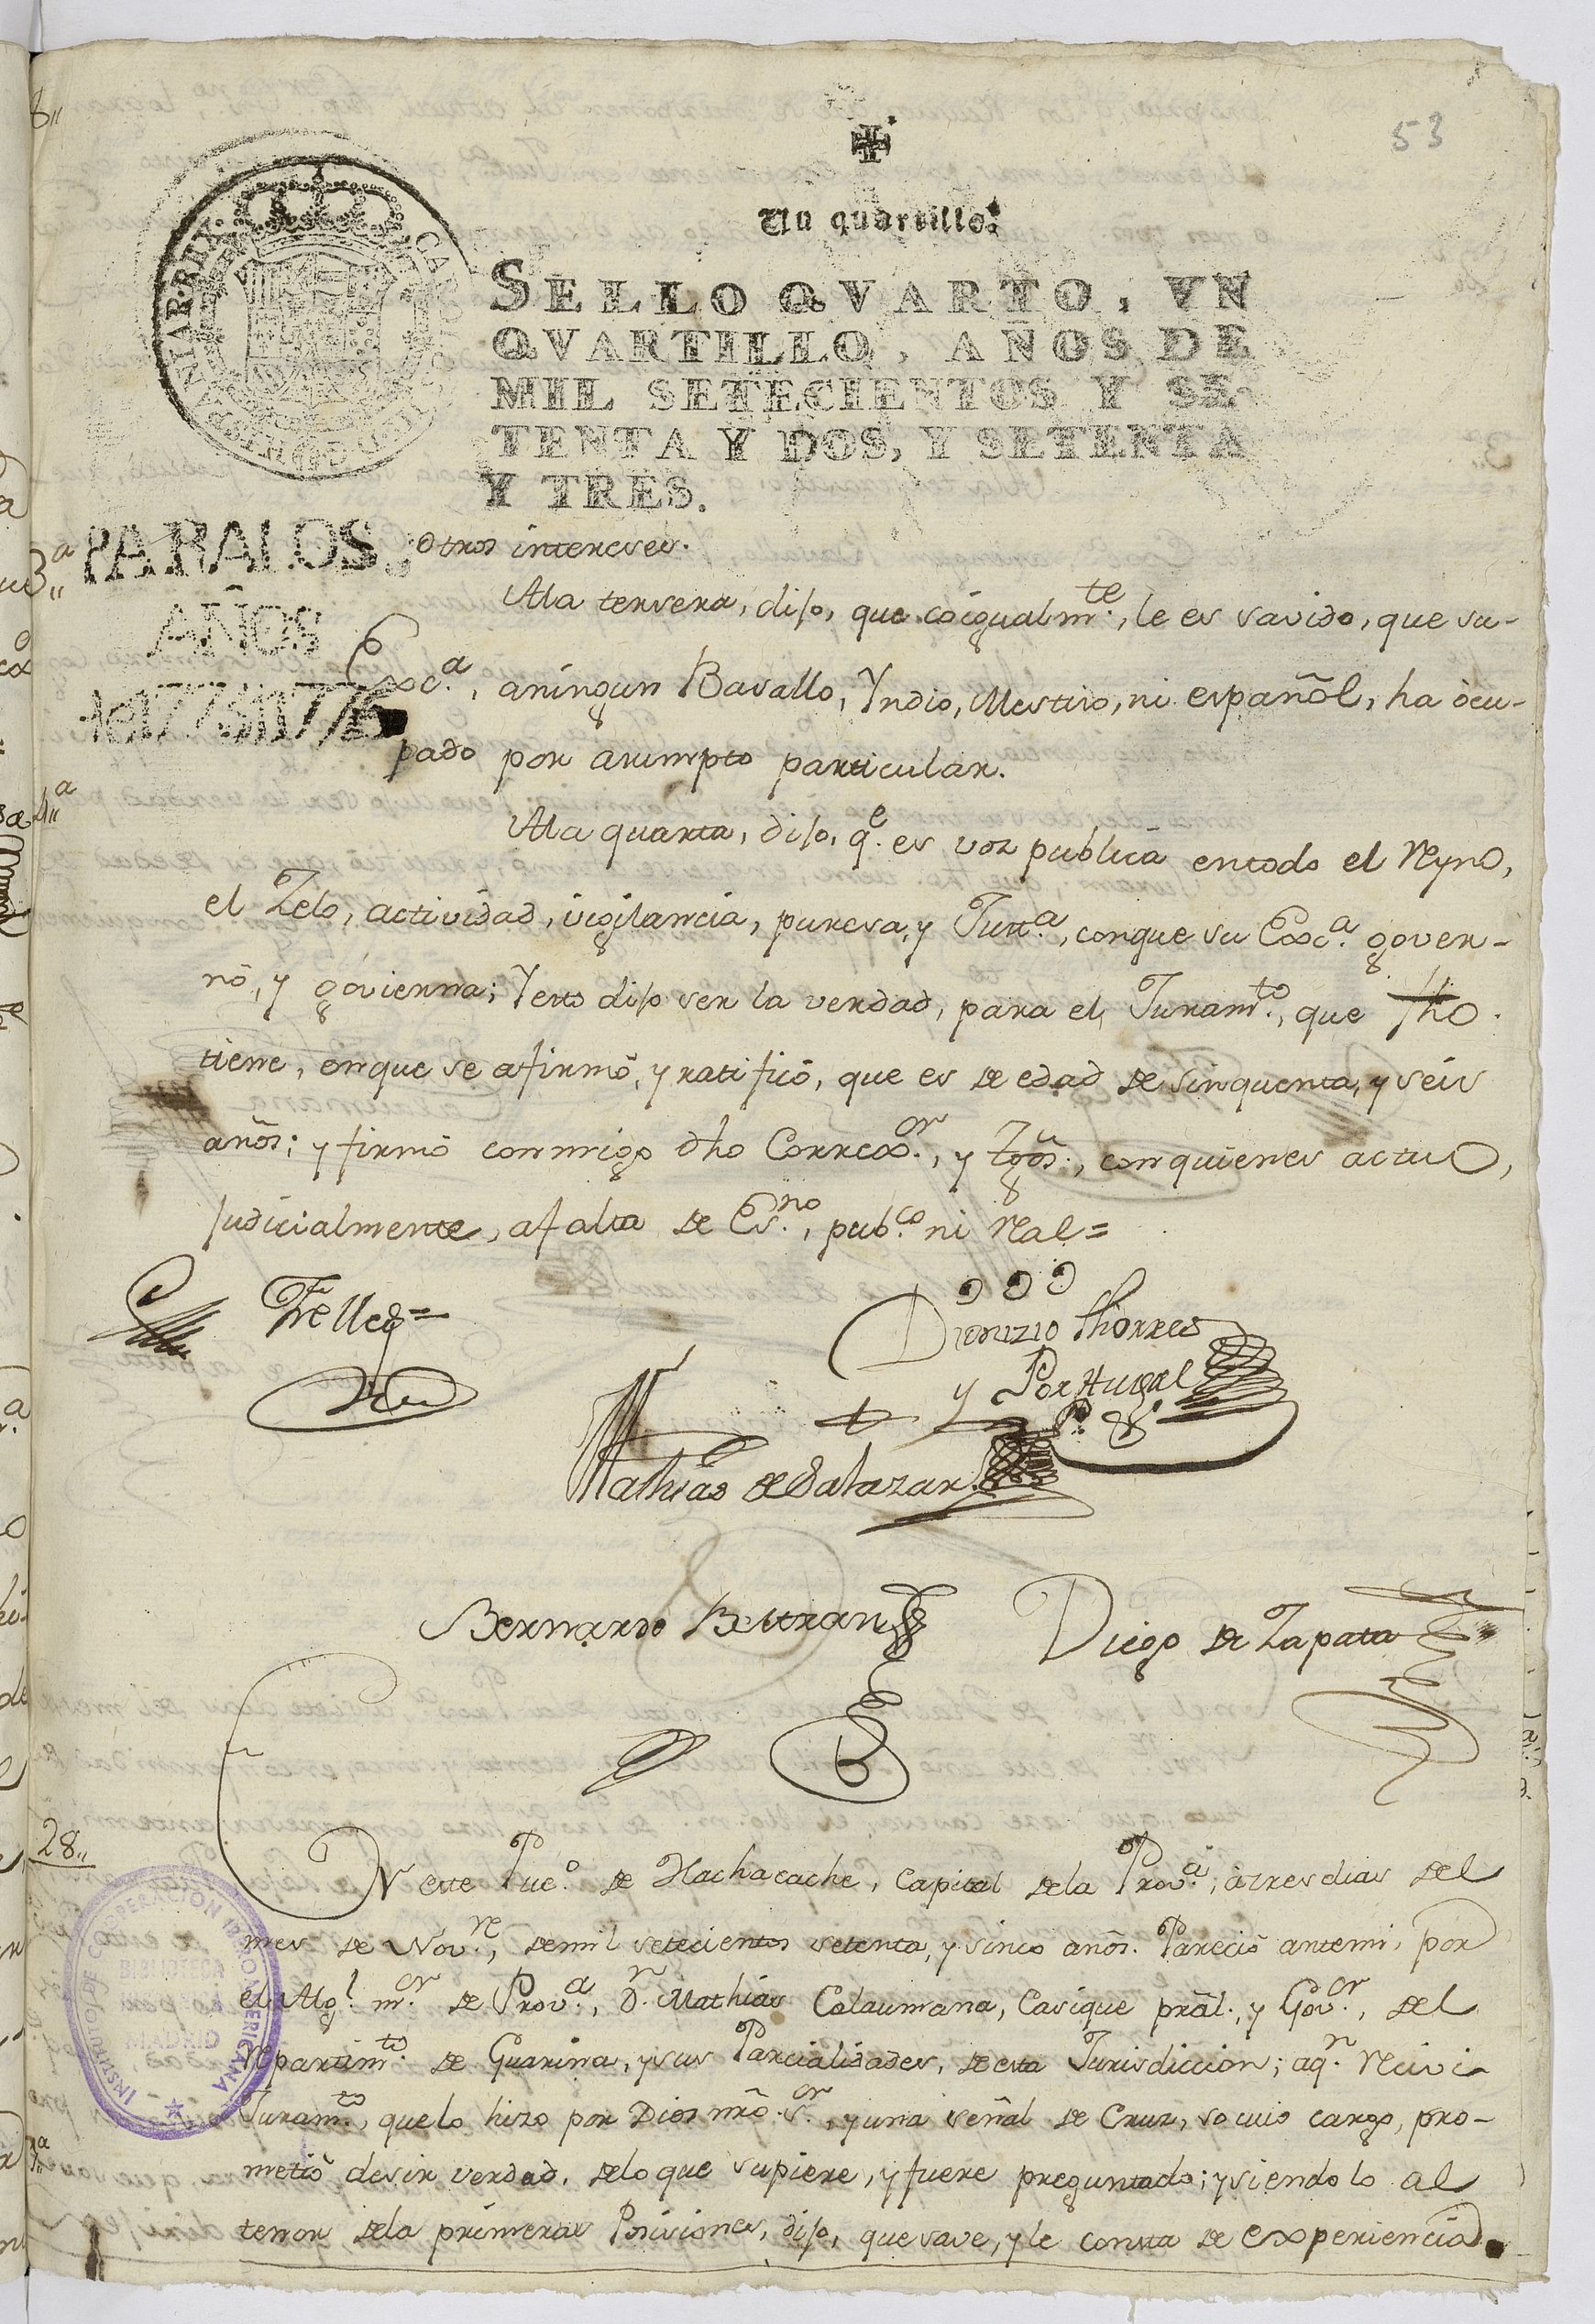 53
Un quartillo.
SELLO QVARTO, VN
QVARTILLO, AÑOS DE
MIL SETECIENTOS Y SE-
TENTA Y DOS, Y SETENTA
Y TRES.
PARA LOS
AÑOS
otros intereses.
3,,ª
Ala tersera, dijo, que coigualmte., le es savido, que su-
Excª., aningun Basallo, Yndio, Mestiso, ni español, ha ocu-
pado por asumpto particular.
4,,ª
Ala quarta, dijo, qe. es voz publica entodo el Reyno,
el Zelo, actividad, vigilancia, puresa, y Justª., conque su Excª. gover-
nó, y govierna; Y esto dijo ser la verdad, para el Juramto., que fho
tiene, enque se afirmó, y ratificó, que es de edad de sinquenta, y séis
años; y firmó conmigo dho Correxor., y tgos., conquienes actuo,
judicialmente, afalta de Esno., pubco. ni Real=
Telles=
Dionizio thorres
y Portugal
Mathias de Salazar
Bernardo Beltran
Diego de Zapata
28,,
EN este Pueo. de Hachacache, Capital dela Provª., á tres dias del
mes de Novre., demil setecientos setenta, y sinco años. Pareció antemi, por
el Algl. mor. de Provª., Dn. Mathias Calaumana, Casique prãl., y Govor., del
Repartimto. de Guarina, y sus Parcialidades, de esta Jurisdiccion; aqn. Reciví
Juramto., que lo hizo por Dios nrõ. Sor., y una señal de Cruz, so cuio cargo, pro-
metió desir verdad, delo que supiere, y fuere preguntado; y siendolo al
1,,ª
tenor dela primeras Posiciones, dijo, que save, y le consta de experiencia
INSTITUTO DE COOPERACION IBEROAMERICANA
BIBLIOTECA
MADRID